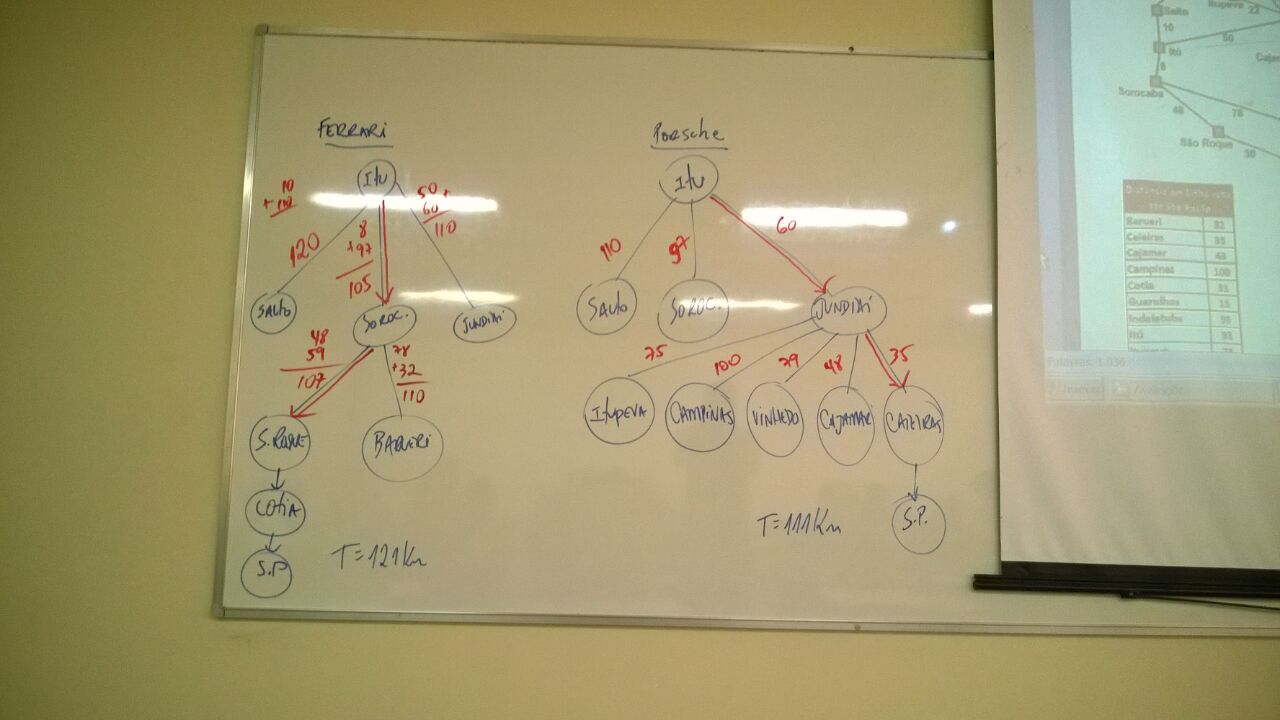 FERRARI
Itu
10
+110
120
8
+97
105
50+
60
110
SALTO
SOROC.
JUNDIAI
48
59
107
78
+32
110
S.ROQUE
BARUERI
COTIA
S.P
T=121Km
PORSCHE
Itu
110
97
60
SALTO
SOROC.
JUNDIAI
75
100
79
48
35
ITUPEVA
CAMPINAS
VINHEDO
CAJAMAR
CAIEIRAS
S.P.
T=111Km
Salto
Itupeva 22
10
Itú
50
8
Sorocaba
48
78
São Roque
30
Distância em linha reta
Barueri 32
Caieiras 35
Cajamar 48
Campinas 100
Cotia
Guarulhos 15
Indaiatuba
Itú
Palavras: 1.036